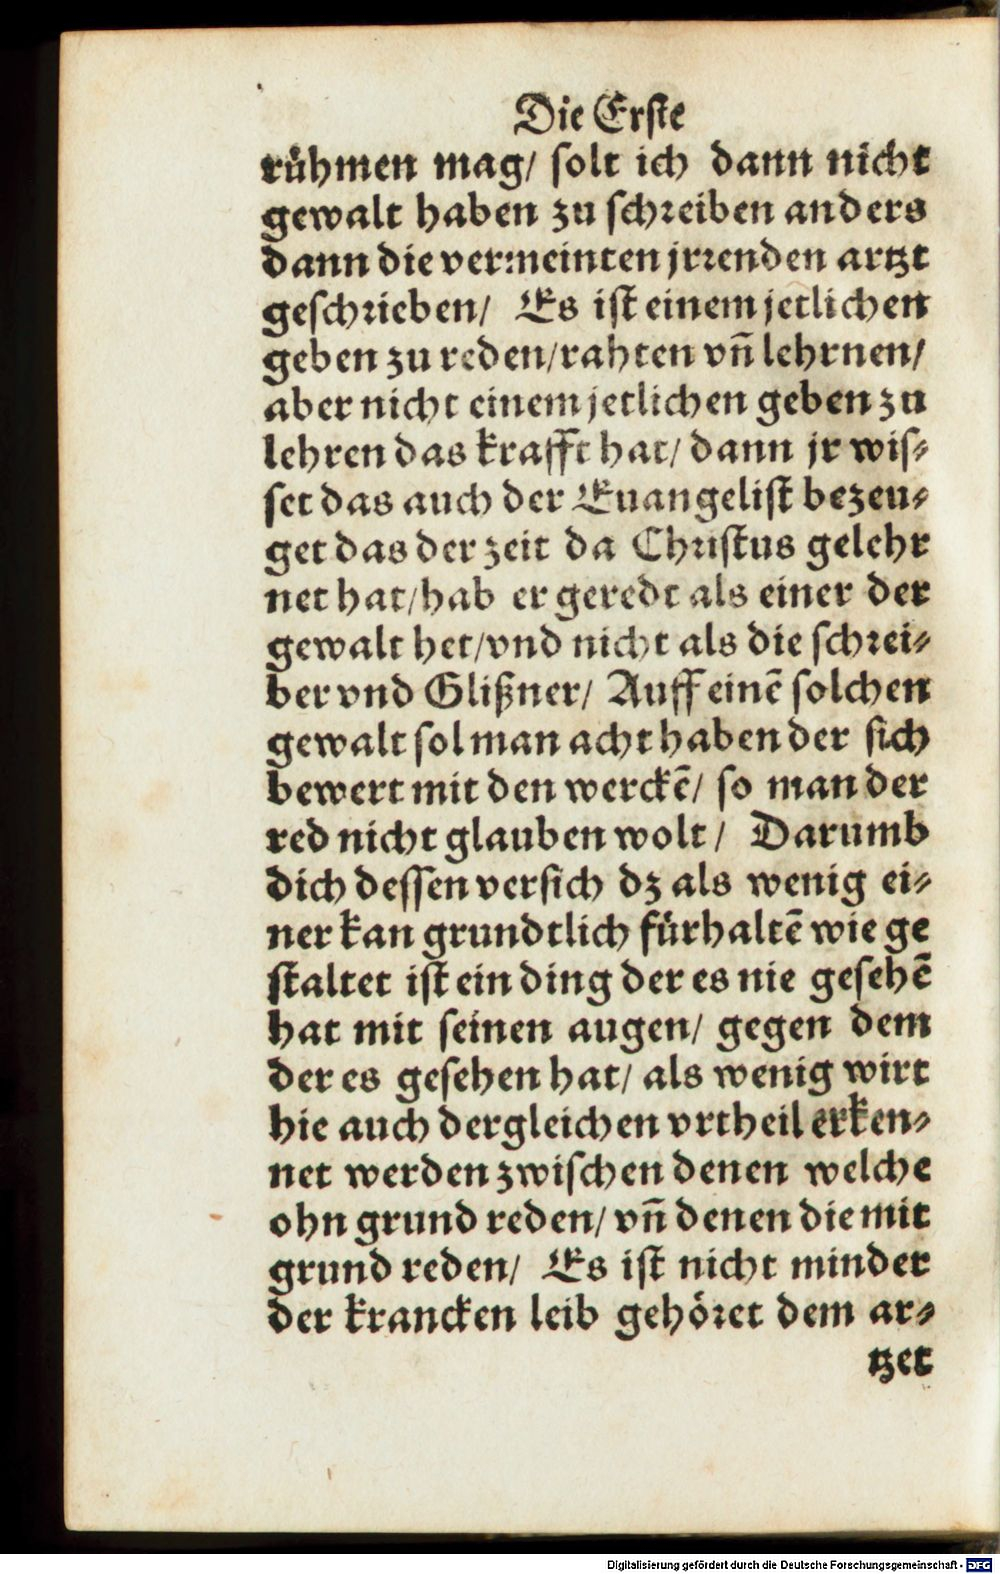 Die Erſte
ruͤhmen mag/ ſolt ich dann nicht
gewalt haben zu ſchꝛeiben anders
dann die vermeinten jrꝛenden artzt
geſchꝛieben/ Es iſt einem jetlichen
geben zu reden/rahten vñ lehrnen/
aber nicht einem jetlichen geben zu
lehren das krafft hat/ dann jr wiſ⸗
ſet das auch der Euangeliſt bezeu⸗
get das der zeit da Chꝛiſtus gelehr
net hat/hab er geredt als einer der
gewalt het/vnd nicht als die ſchꝛei⸗
ber vnd Glißner/ Auff einẽ ſolchen
gewalt ſol man acht haben der ſich
bewert mit den werckẽ/ ſo man der
red nicht glauben wolt/ Darumb
dich deſſen verſich dz als wenig ei⸗
ner kan grundtlich fuͤrhaltẽ wie ge
ſtaltet iſt ein ding der es nie geſehẽ
hat mit ſeinen augen/ gegen dem
der es geſehen hat/ als wenig wirt
hie auch dergleichen vrtheil erken⸗
net werden zwiſchen denen welche
ohn grund reden/ vñ denen die mit
grund reden/ Es iſt nicht minder
der krancken leib gehoͤꝛet dem ar⸗
tzet
Digitalisierung gefördert durch die Deutsche Forschungsgemeinschaft - DFG